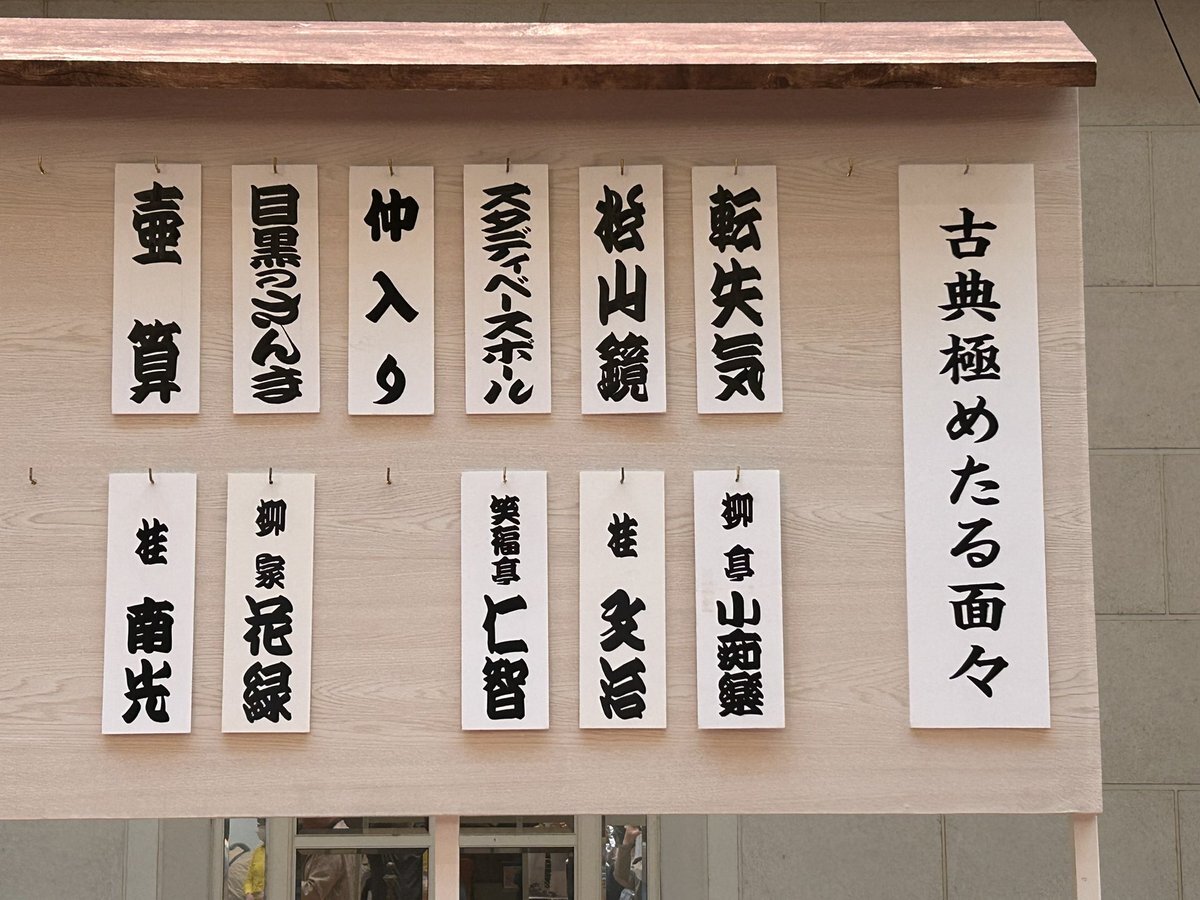 古典極めたる面々
転失気
柳亭小痴楽
松山鏡
桂文治
スタディベースボール
笑福亭仁智
仲入り
目黒のさんま
柳家花緑
壷算
桂南光